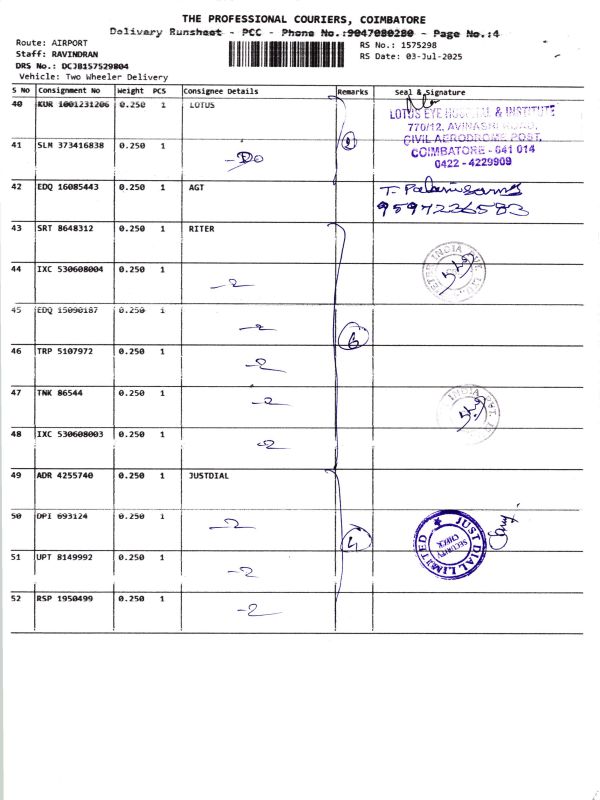 THE PROFESSIONAL COURIERS, COIMBATORE
Delivery Runsheet - PCC - Phone No.:9047080280 - Page No.:4
Route: AIRPORT
RS No.: 1575298
Staff: RAVINDRAN
RS Date: 03-Jul-2025
DRS No.: DCJB157529804
Vehicle: Two Wheeler Delivery
S No Consignment No Weight PCS Consignee Details Remarks Seal & Signature
40 KUR 1001231206 0.250 1 LOTUS
LOTUS EYE HOSPITAL & INSTITUTE
770/12, AVINASHI ROAD,
CIVIL AERODROME POST,
COIMBATORE - 641 014
0422 - 4229909
41 SLM 373416838 0.250 1 -Do 2
42 EDQ 16085443 0.250 1 AGT T. Palanisamy
9597236583
43 SRT 8648312 0.250 1 RITER
44 IXC 530608004 0.250 1 -2-
45 EDQ 15090187 0.250 1 -2- 6
46 TRP 5107972 0.250 1 -2-
47 TNK 86544 0.250 1 -2-
48 IXC 530608003 0.250 1 -2-
49 ADR 4255740 0.250 1 JUSTDIAL
50 DPI 693124 0.250 1 -2- 4
JUST DIAL LIMITED
SECURITY CHECK
51 UPT 8149992 0.250 1 -2-
52 RSP 1950499 0.250 1 -2